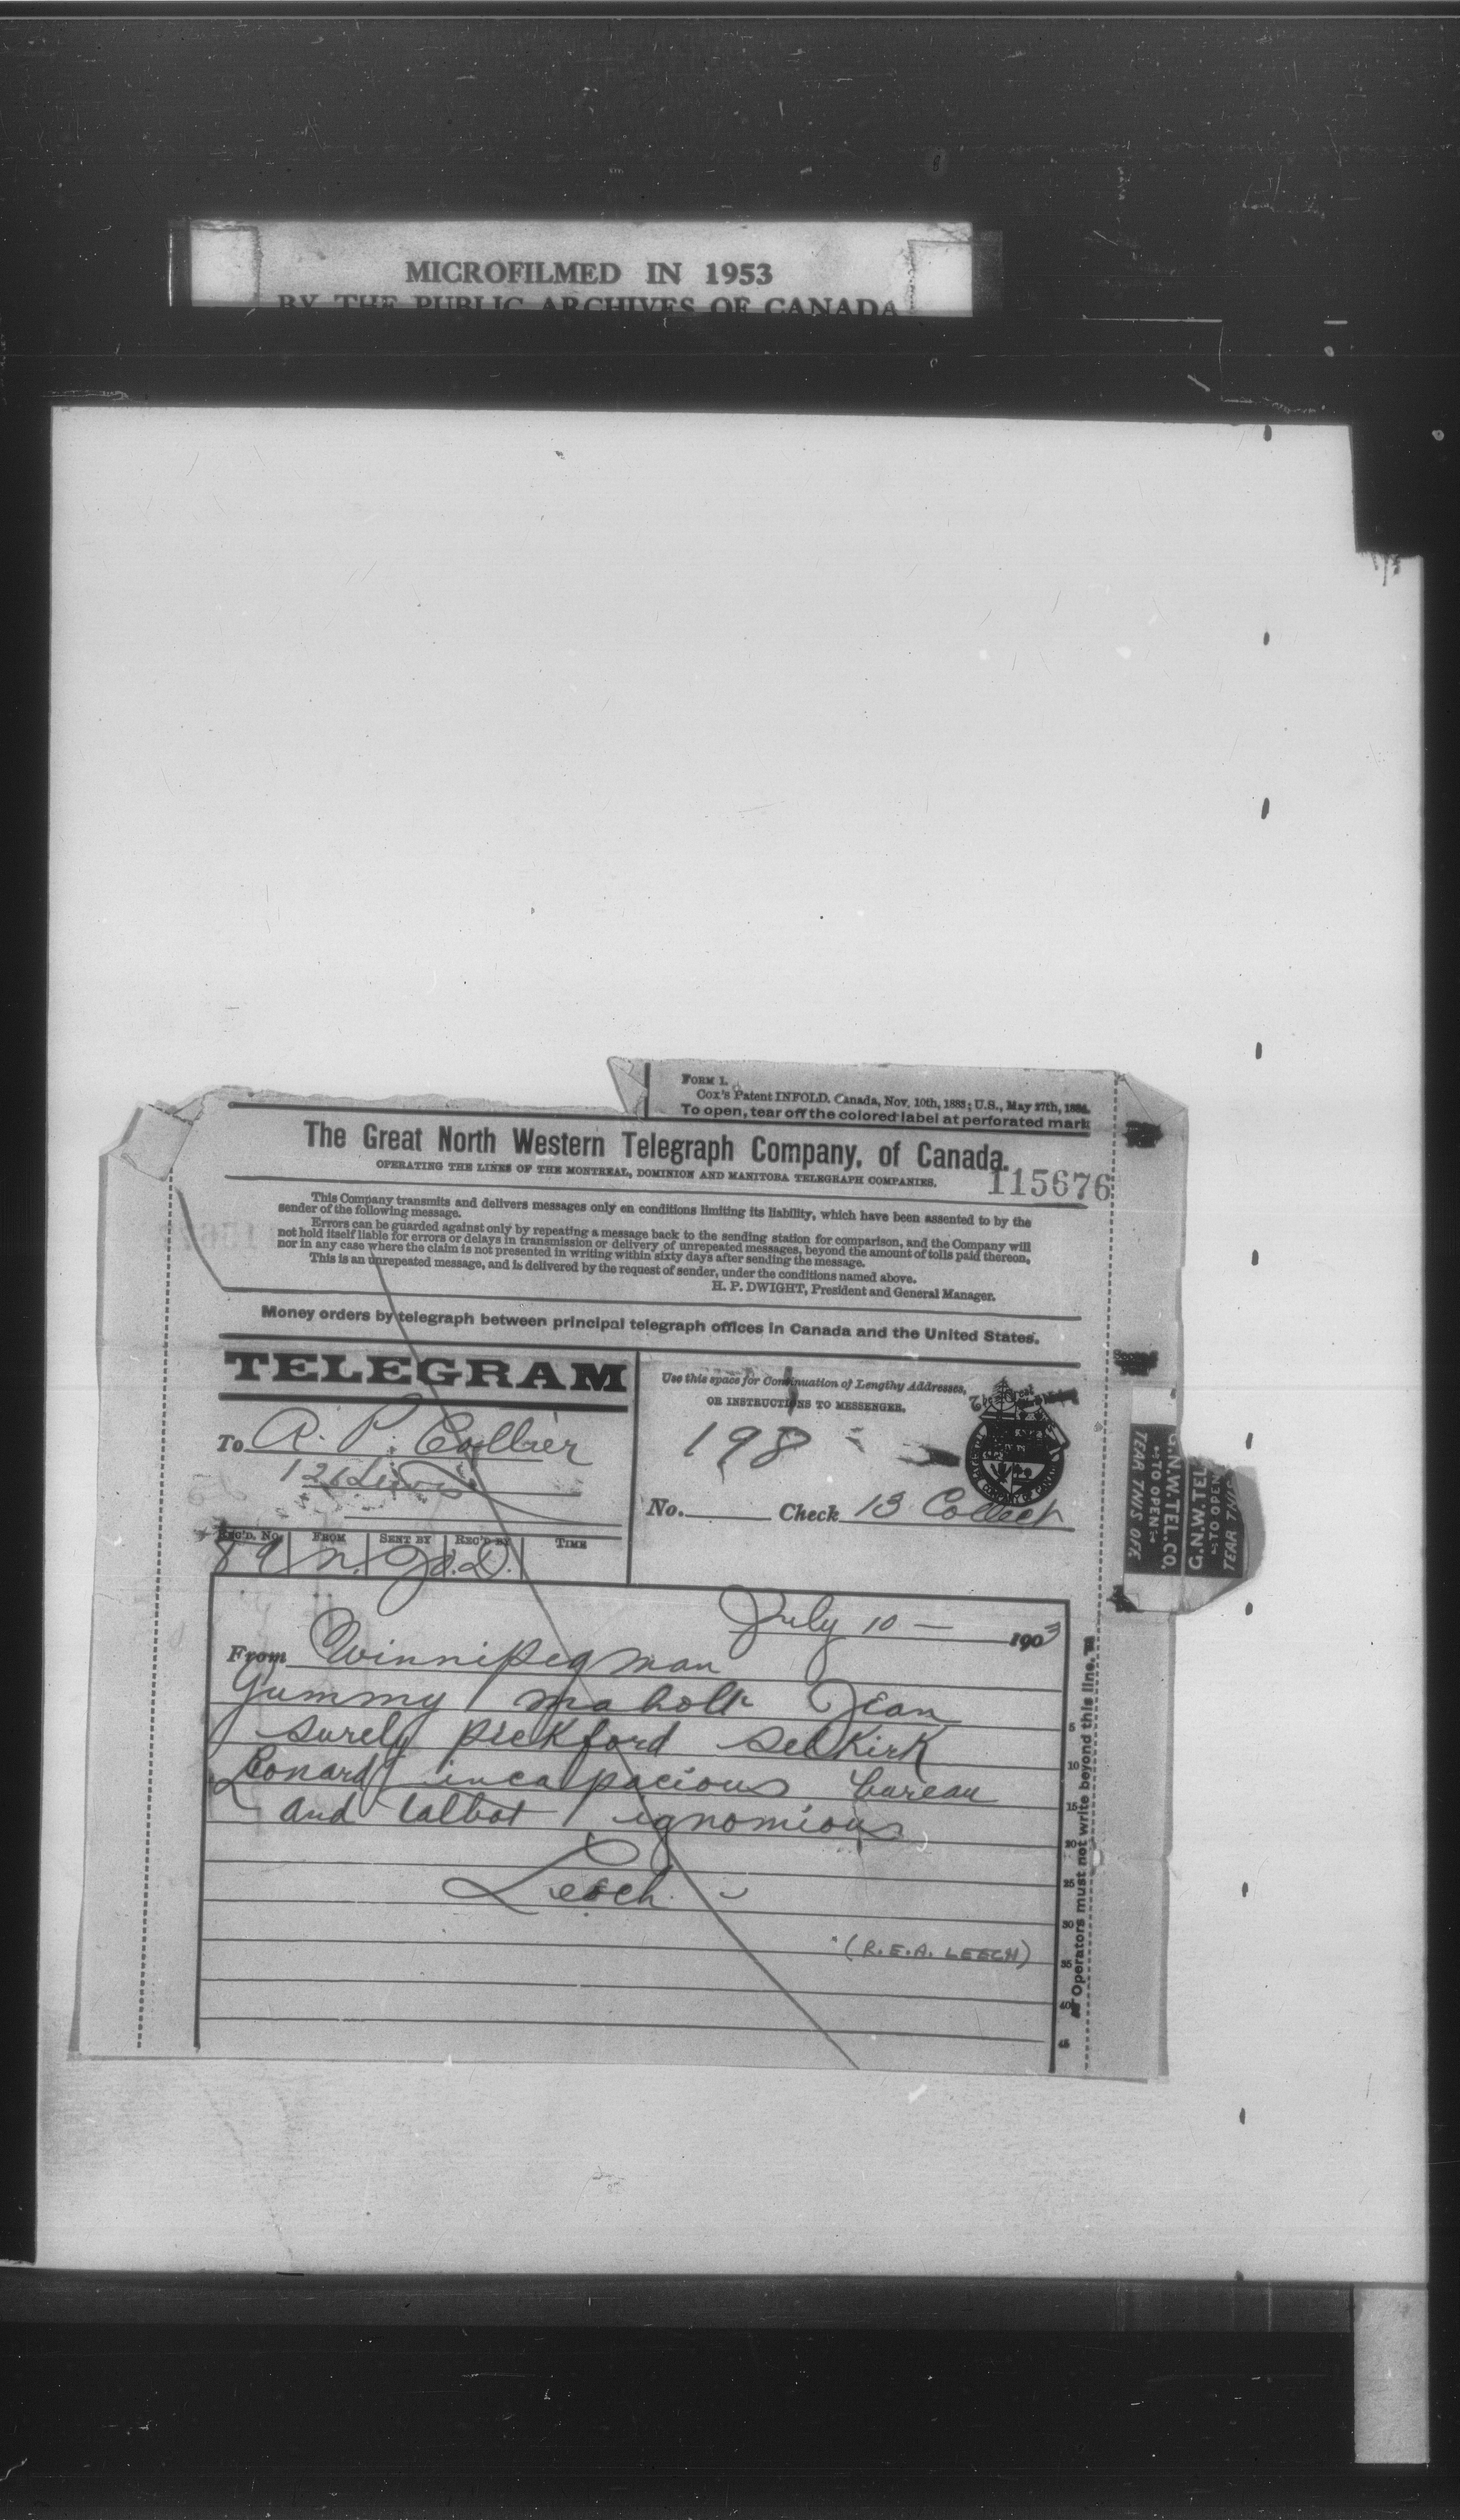 MICROFILMED IN 1953
BY THE PUBLIC ARCHIVES OF CANADA
FORM 1.
Cox's Patent INFOLD. Canada, Nov. 10th, 1883; U.S., May 27th, 1884.
To open, tear off the colored label at perforated mark
The Great North Western Telegraph Company, of Canada.
OPERATING THE LINES OF THE MONTREAL, DOMINION AND MANITOBA TELEGRAPH COMPANIES.
115676
This Company transmits and delivers messages only on conditions limiting its liability, which have been assented to by the
sender of the following message.
Errors can be guarded against only by repeating a message back to the sending station for comparison, and the Company will
not hold itself liable for errors or delays in transmission or delivery of unrepeated messages, beyond the amount of tolls paid thereon,
nor in any case where the claim is not presented in writing within sixty days after sending the message.
This is an unrepeated message, and is delivered by the request of sender, under the conditions named above.
H. P. DWIGHT, President and General Manager.
Money orders by telegraph between principal telegraph offices in Canada and the United States.
TELEGRAM
Use this space for Continuation of Lengthy Addresses,
OR INSTRUCTIONS TO MESSENGER.
To A. P. Collier
121 Lewis
198
No. Check 13 Collect
REC'D. No. FROM SENT BY REC'D BY TIME
89 n.
G.N.W.TEL.CO.
TO OPEN
TEAR THIS OFF
G.N.W.TEL
TO OPEN
TEAR THIS
July 10 - 1903
From Winnipeg man
Gummy Jean
surely pickford selkirk
Leonard incapacious bureau
and talbot ignomious
Leech
(R.E.A. LEECH)
5
10
15
20
25
30
35
40
45
Operators must not write beyond this line.